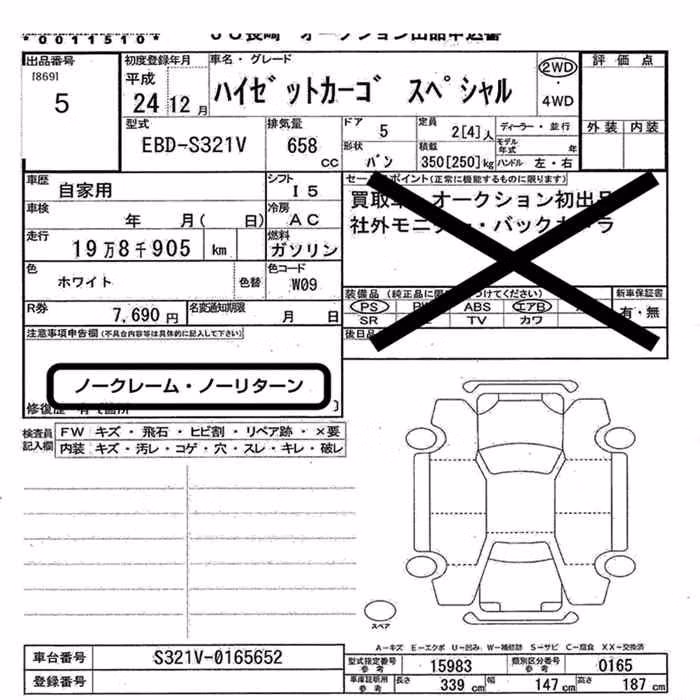 *0011510*
JU長崎 オークション出品申込書
出品番号 初度登録年月 車名・グレード 評価点
[869] 平成 2WD
5 24 12月 ハイゼットカーゴ スペシャル ・
4WD
型式 排気量 ドア 5 定員 2[4]人 ディーラー・並行 外装 内装
EBD-S321V 658 cc 形状 バン 積載 350[250]kg モデル年式 年
ハンドル 左・右
車歴 自家用 シフト I5 セールスポイント(正常に機能するものに限ります)
車検 年 月( 日) 冷房 AC 買取車 オークション初出品
走行 19万8千905 km 燃料 ガソリン 社外モニター・バックカメラ
色 ホワイト 色替 色コード W09
装備品 (純正品に限 つけてください) 新車保証書
R券 7,690円 名変通知期限 月 日 PS ABS エアB 有・無
SR TV カワ
注意事項申告欄(不具合内容等は具体的に記入して下さい) 後日品
ノークレーム・ノーリターン
修復歴
検査員 FW キズ・飛石・ヒビ割・リペア跡・×要
記入欄 内装 キズ・汚レ・コゲ・穴・スレ・キレ・破レ
スペア
A-キズ E-エクボ U-凹み W-補修跡 S-サビ C-腐食 XX-交換済
車台番号 S321V-0165652 型式指定番号 参考 15983 類別区分番号 参考 0165
登録番号 車庫証明用 参考 長さ 339cm 幅 147cm 高さ 187cm